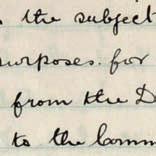 the subject
purposes. for
from the D
to the Comm